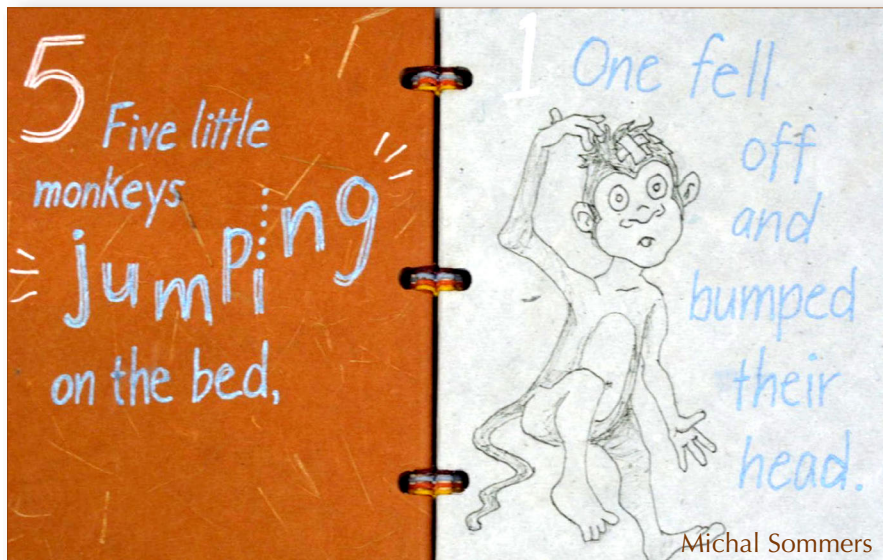 5
Five little
monkeys
jumping
on the bed,
1 One fell
off
and
bumped
their
head.
Michal Sommers